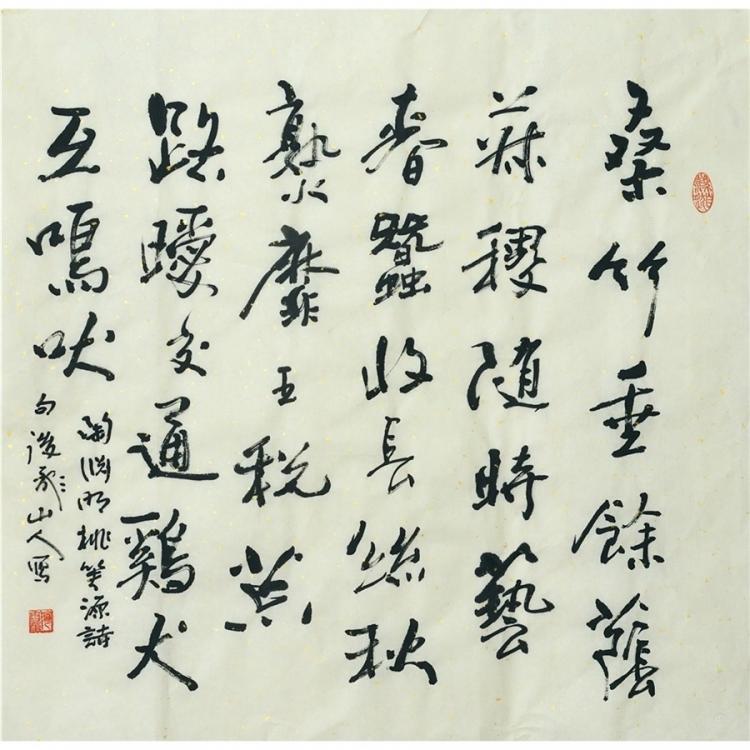 桑竹垂餘蔭
菽稷隨時藝
春蠶收長絲秋
熟靡王稅荒
路曖交通鷄犬
互鳴吠
陶渊明桃花源詩
句山人寫